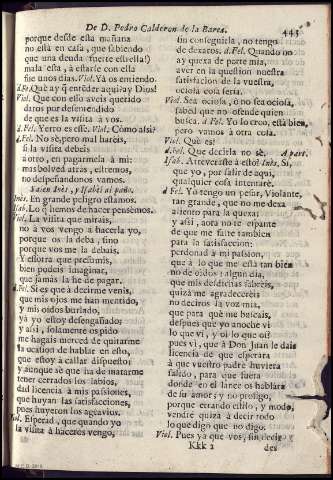 De D. Pedro Calderon de la Barca.
443
porque desde esta mañana
no està en casa, que sabiendo
que una deuda
mala esta, à estarse con ella
fue unos dias. Viol. Yà os entiendo.
d. Fe. Què ay q̃ entẽder aqui? ay Dios!
Viol. Que con esto aveis querido
daros por desentendido
de que es la visita à vos.
d. Fel. Yerro es esse. Viol. Còmo assi?
d. Fel. No sè, pero mal hareis,
si la visita debeis
à otro, en pagarmela à mi:
mas bolved atràs, extremos,
no despeñandonos vamos.
Salen Inès, y Isabel al paño.
Inès. En grande peligro estamos.
Isab. Lo q̃ hemos de hacer pensemos.
Viol. La visita que mirais,
no à vos vengo à hacerla yo,
porque os la deba, sino
porque vos me la debais.
Y essotra que presumis,
bien podeis imaginar,
que jamàs la he de pagar.
d. Fel. Si es que à decirme venis,
que mis ojos me han mentido,
y mis oidos burlado,
yà yo estoy desengañado;
y assi, solamente os pido
me hagais merced de quitarme
la ocasion de hablar en esto,
que estoy à callar dispuesto;
y aunque sè que ha de matarme
tener cerrados los labios,
dad licencia à mis passiones,
que huyan las satisfacciones,
pues huyeron los agravios.
Viol. Esperad, que quando yo
la visita à haceros vengo,
sin conseguirla, no tengo
de dexaros. d. Fel. Quando no
ay quexa de parte mia,
aver en la question nuestra
satisfacion de la vuestra,
ociosa cosa seria.
Viol. Sea ociosa, ò no sea ociosa,
sabed que no ofende quien
busca. d. Fel. Yo lo creo, està bien,
pero vamos à otra cosa.
Viol. Què es?
d. Fel. Que decirla no sè. A parte.
Isab. Atreveràste à esto? Inès. Si,
que yo, por salir de aqui,
qualquier cosa intentarè.
d. Fel. Yo tengo un pesar, Violante,
tan grande, que no me dexa
aliento para la quexa:
y assi, aora no te espante
de que me falte tambien
para la satisfaccion:
perdonad à mi passion,
que à lo que me està tan bien
no dè oidos: algun dia,
que mis desdichas sabreis,
quizà me agradecereis
no deciros la voz mia,
que para què me buscais,
despues que yo anoche vi
lo que vi, y oì lo que oì;
pues vi, que à Don Juan le dais
licencia de que esperara
à que vuestro padre huviera
salido, para que fuera
donde en el lance os hablara
de su amor; y no prosigo,
porque errando estilo, y modo,
vendrè quizà à decir todo
lo que digo que no digo.
Viol. Pues ya que vos, sin decir
Kkk 2
des